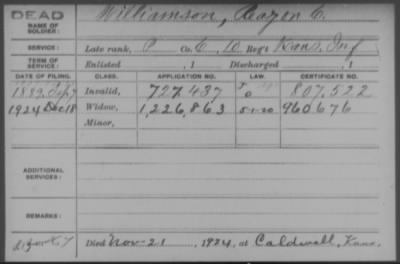 DEAD
NAME OF SOLDIER: Williamson, Hazen C.
SERVICE: Late rank, P Co. C, 10 Reg't Kans. Inf
TERM OF SERVICE: Enlisted , 1 Discharged , 1
DATE OF FILING. CLASS. APPLICATION NO. LAW. CERTIFICATE NO.
1889 Invalid, 727,437 807,522
1924 Dec 18 Widow, 1,226,863 5-1-20 960676
Minor,
ADDITIONAL SERVICES:
REMARKS:
Died Nov-21 , 1924, at Caldwell, Kans.